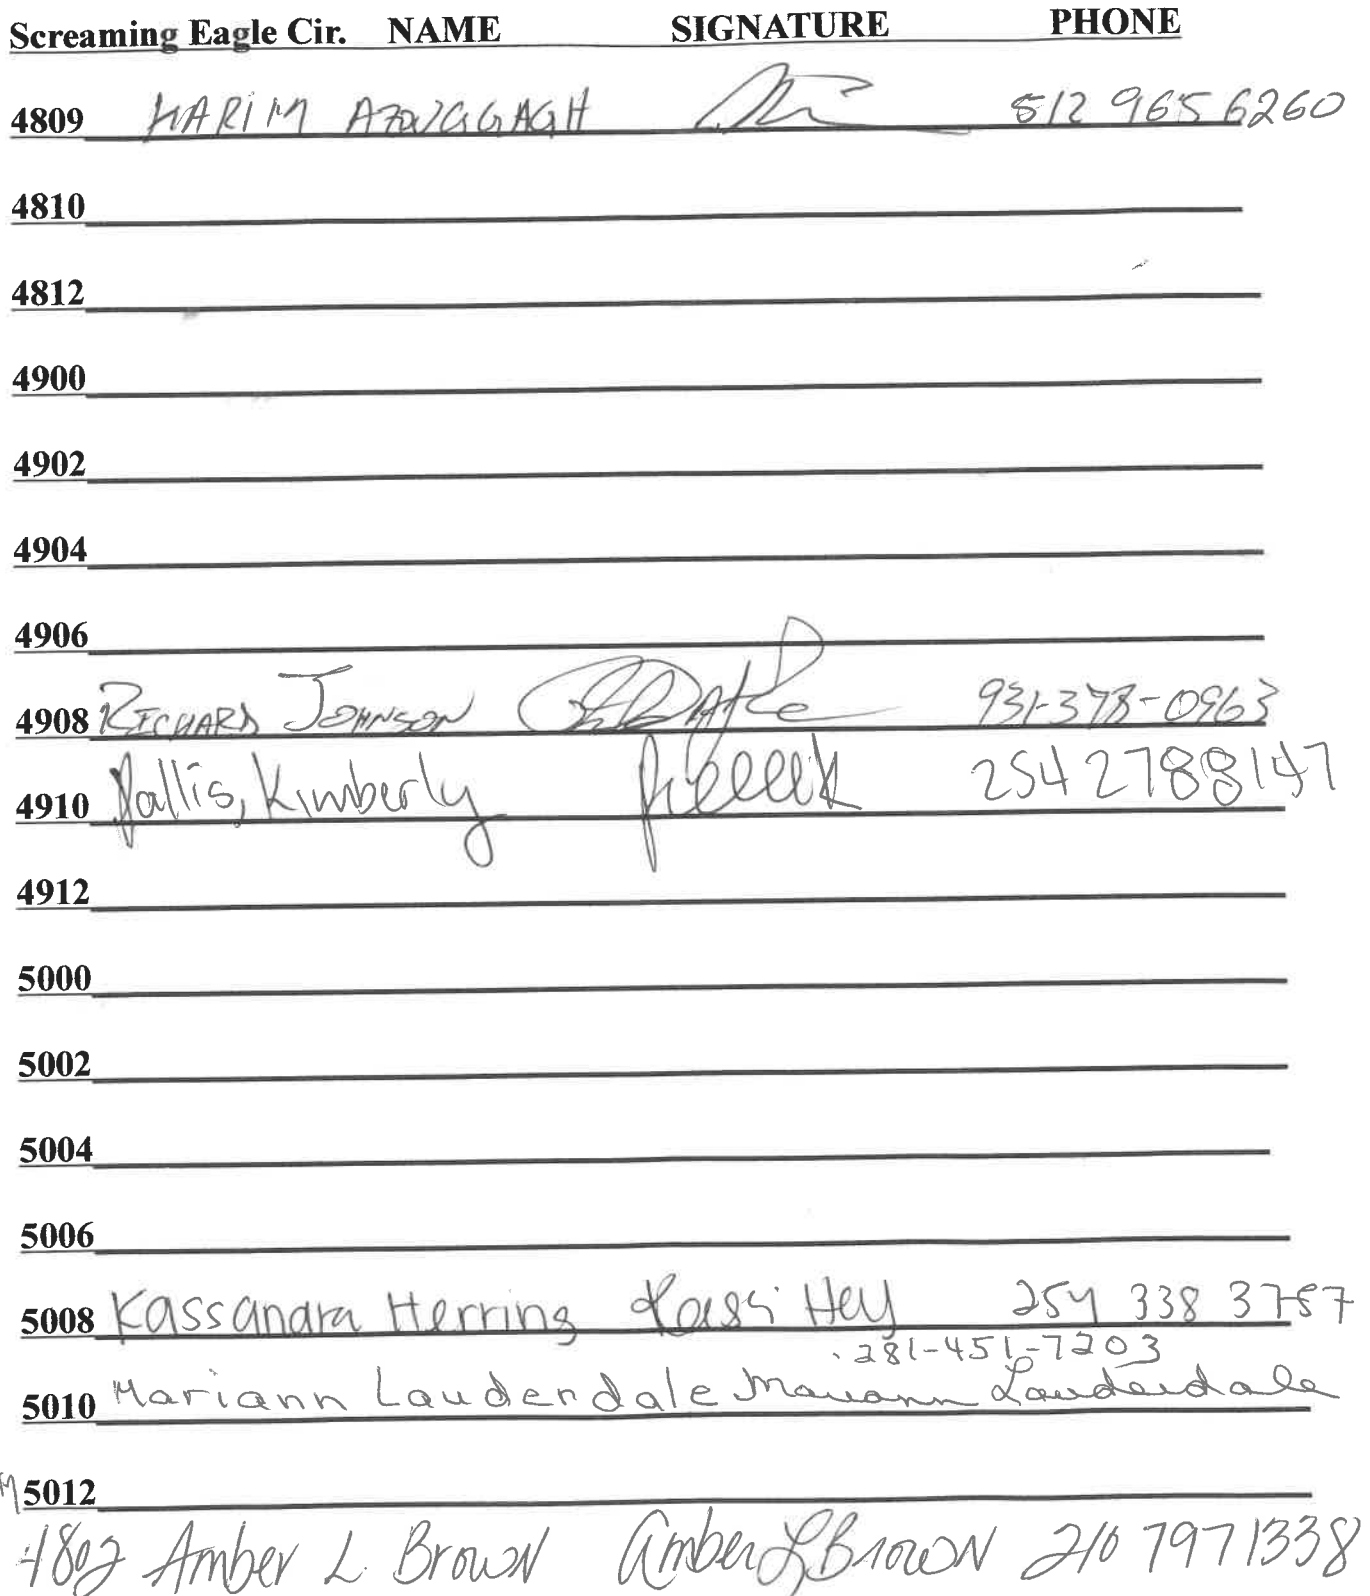 Screaming Eagle Cir. NAME SIGNATURE PHONE
4809 KARIM AZOUGGAGH 512 965 6260
4810
4812
4900
4902
4904
4906
4908 RICHARD JOHNSON 931-378-0963
4910 Pallis, Kimberly 254 2788147
4912
5000
5002
5004
5006
5008 Kassandra Herring Kassi Hey 254 338 3787
281-451-7203
5010 Mariann Lauderdale Mariann Lauderdale
5012
4802 Amber L. Brown Amber L Brown 210 7971338